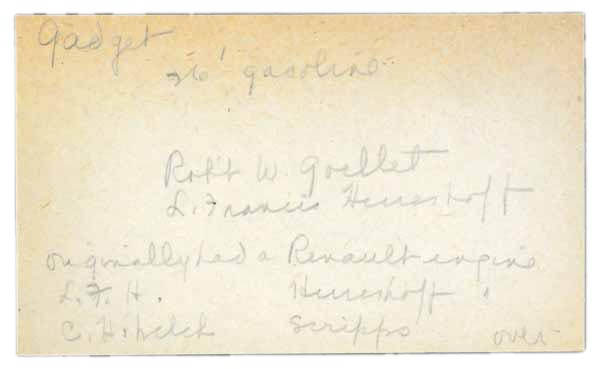 Gadget
26' gasoline
Rob't W. Goellet
L. Francis Herreshoff
originally had a Renault engine
L. F. H. Herreshoff "
C. H. Welch Scripps over